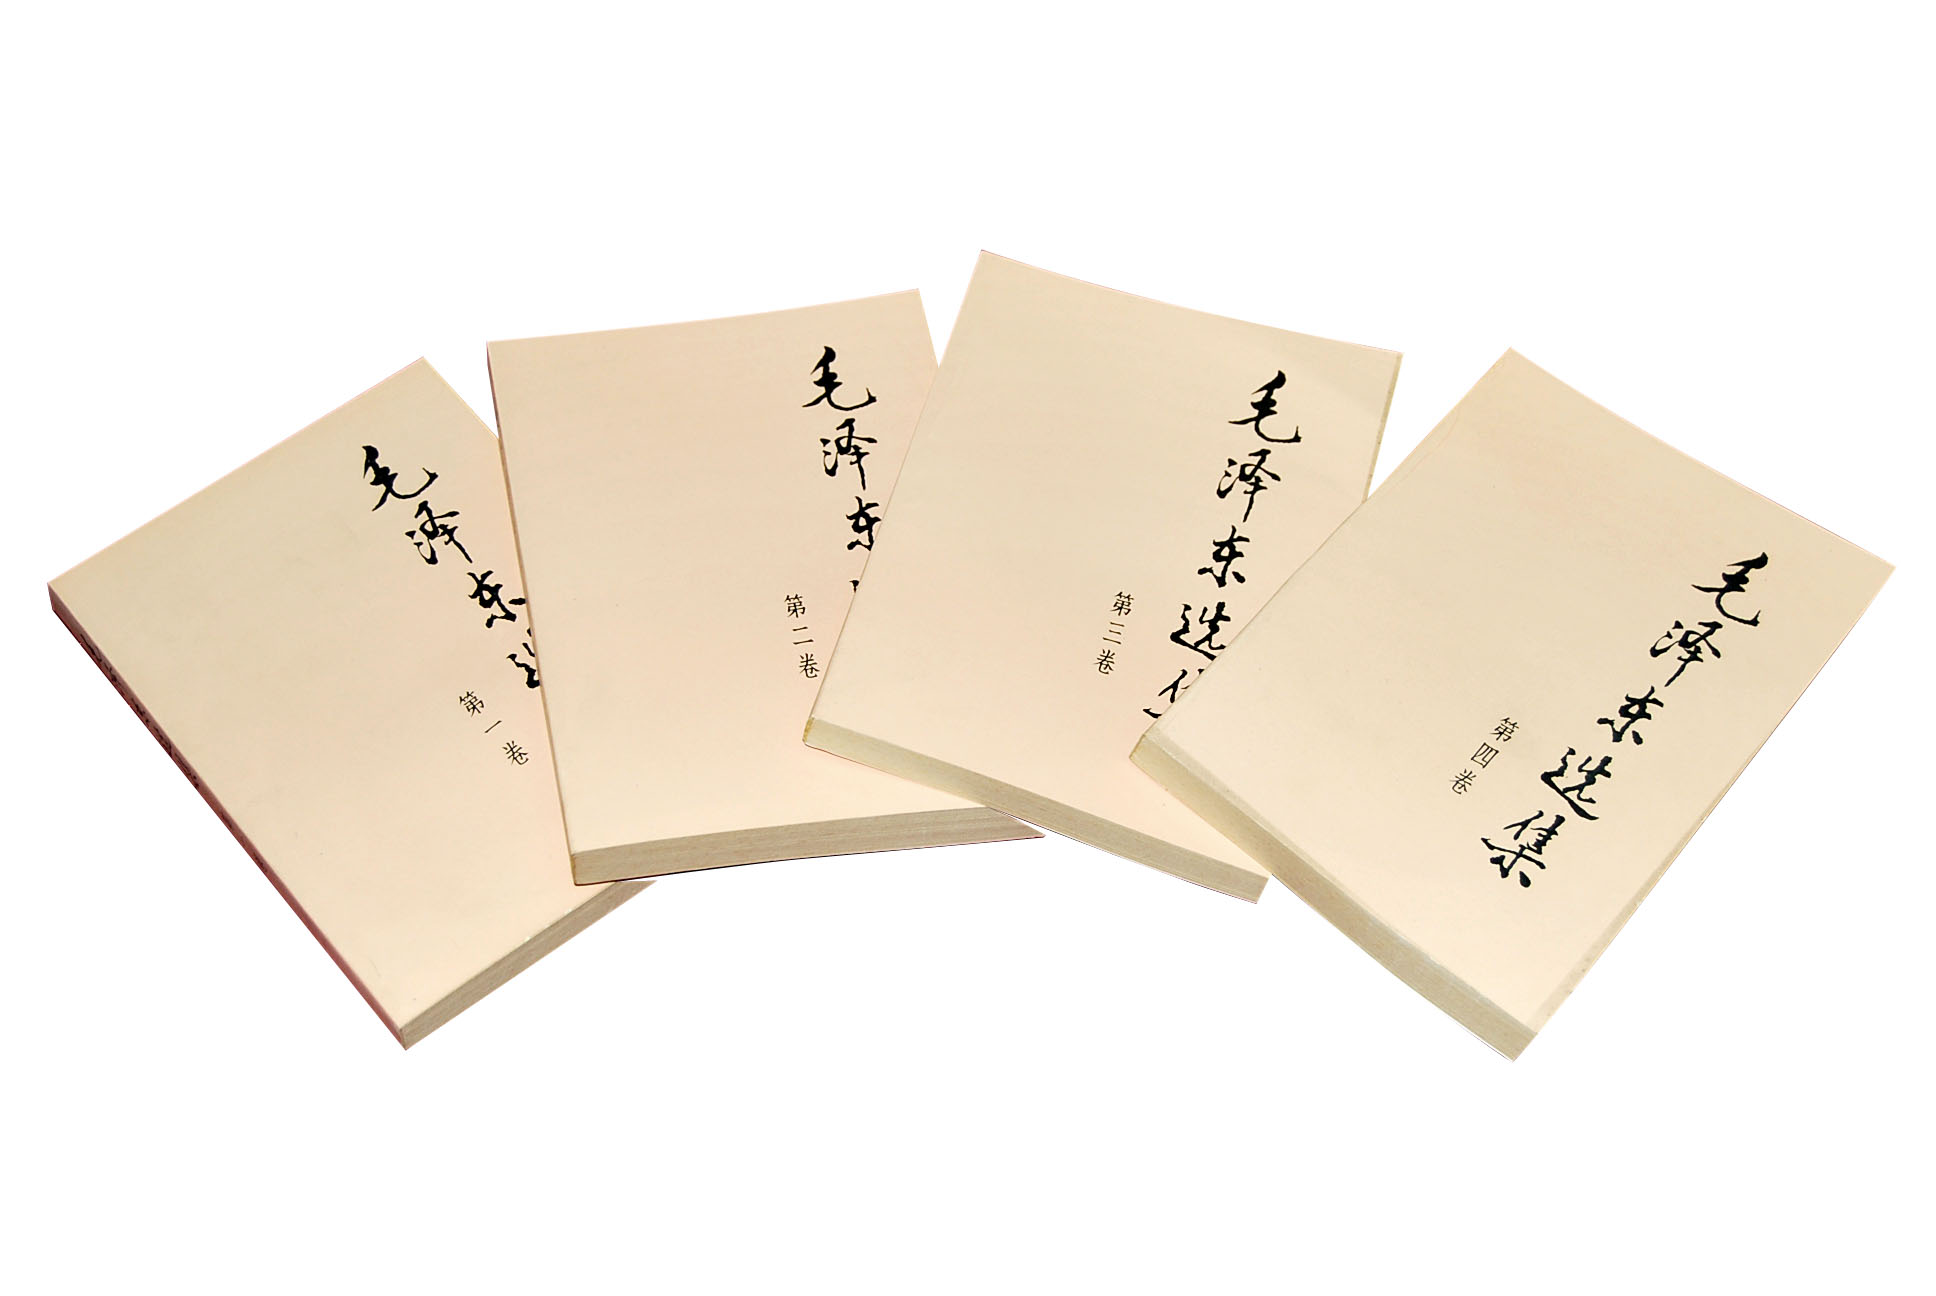 毛泽东选
第一卷
毛泽东
第二卷
毛泽东选集
第三卷
毛泽东选集
第四卷